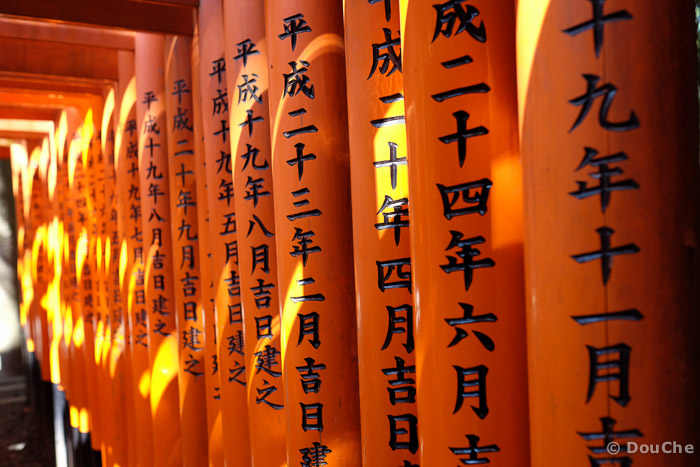 十九年十一月吉
成二十四年六月吉
平成二十年四月吉日
平成二十三年二月吉日建
平成十九年八月吉日建之
平成十九年五月吉日建之
平成二十年九月吉日建之
平成十九年八月吉日建之
平成十九年七月吉日建之
© DouChe